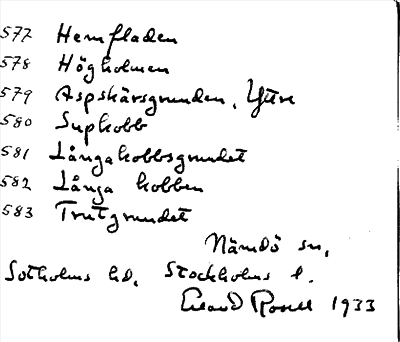 577 Hemfladen
578 Högholmen
579 Aspskärsgrunden, Yttre
580 Supkobb
581 Långakobbsgrundet
582 Långa kobben
583 Trutgrundet
Nämdö sn,
Sotholms hd, Stockholms l.
Rosell 1933